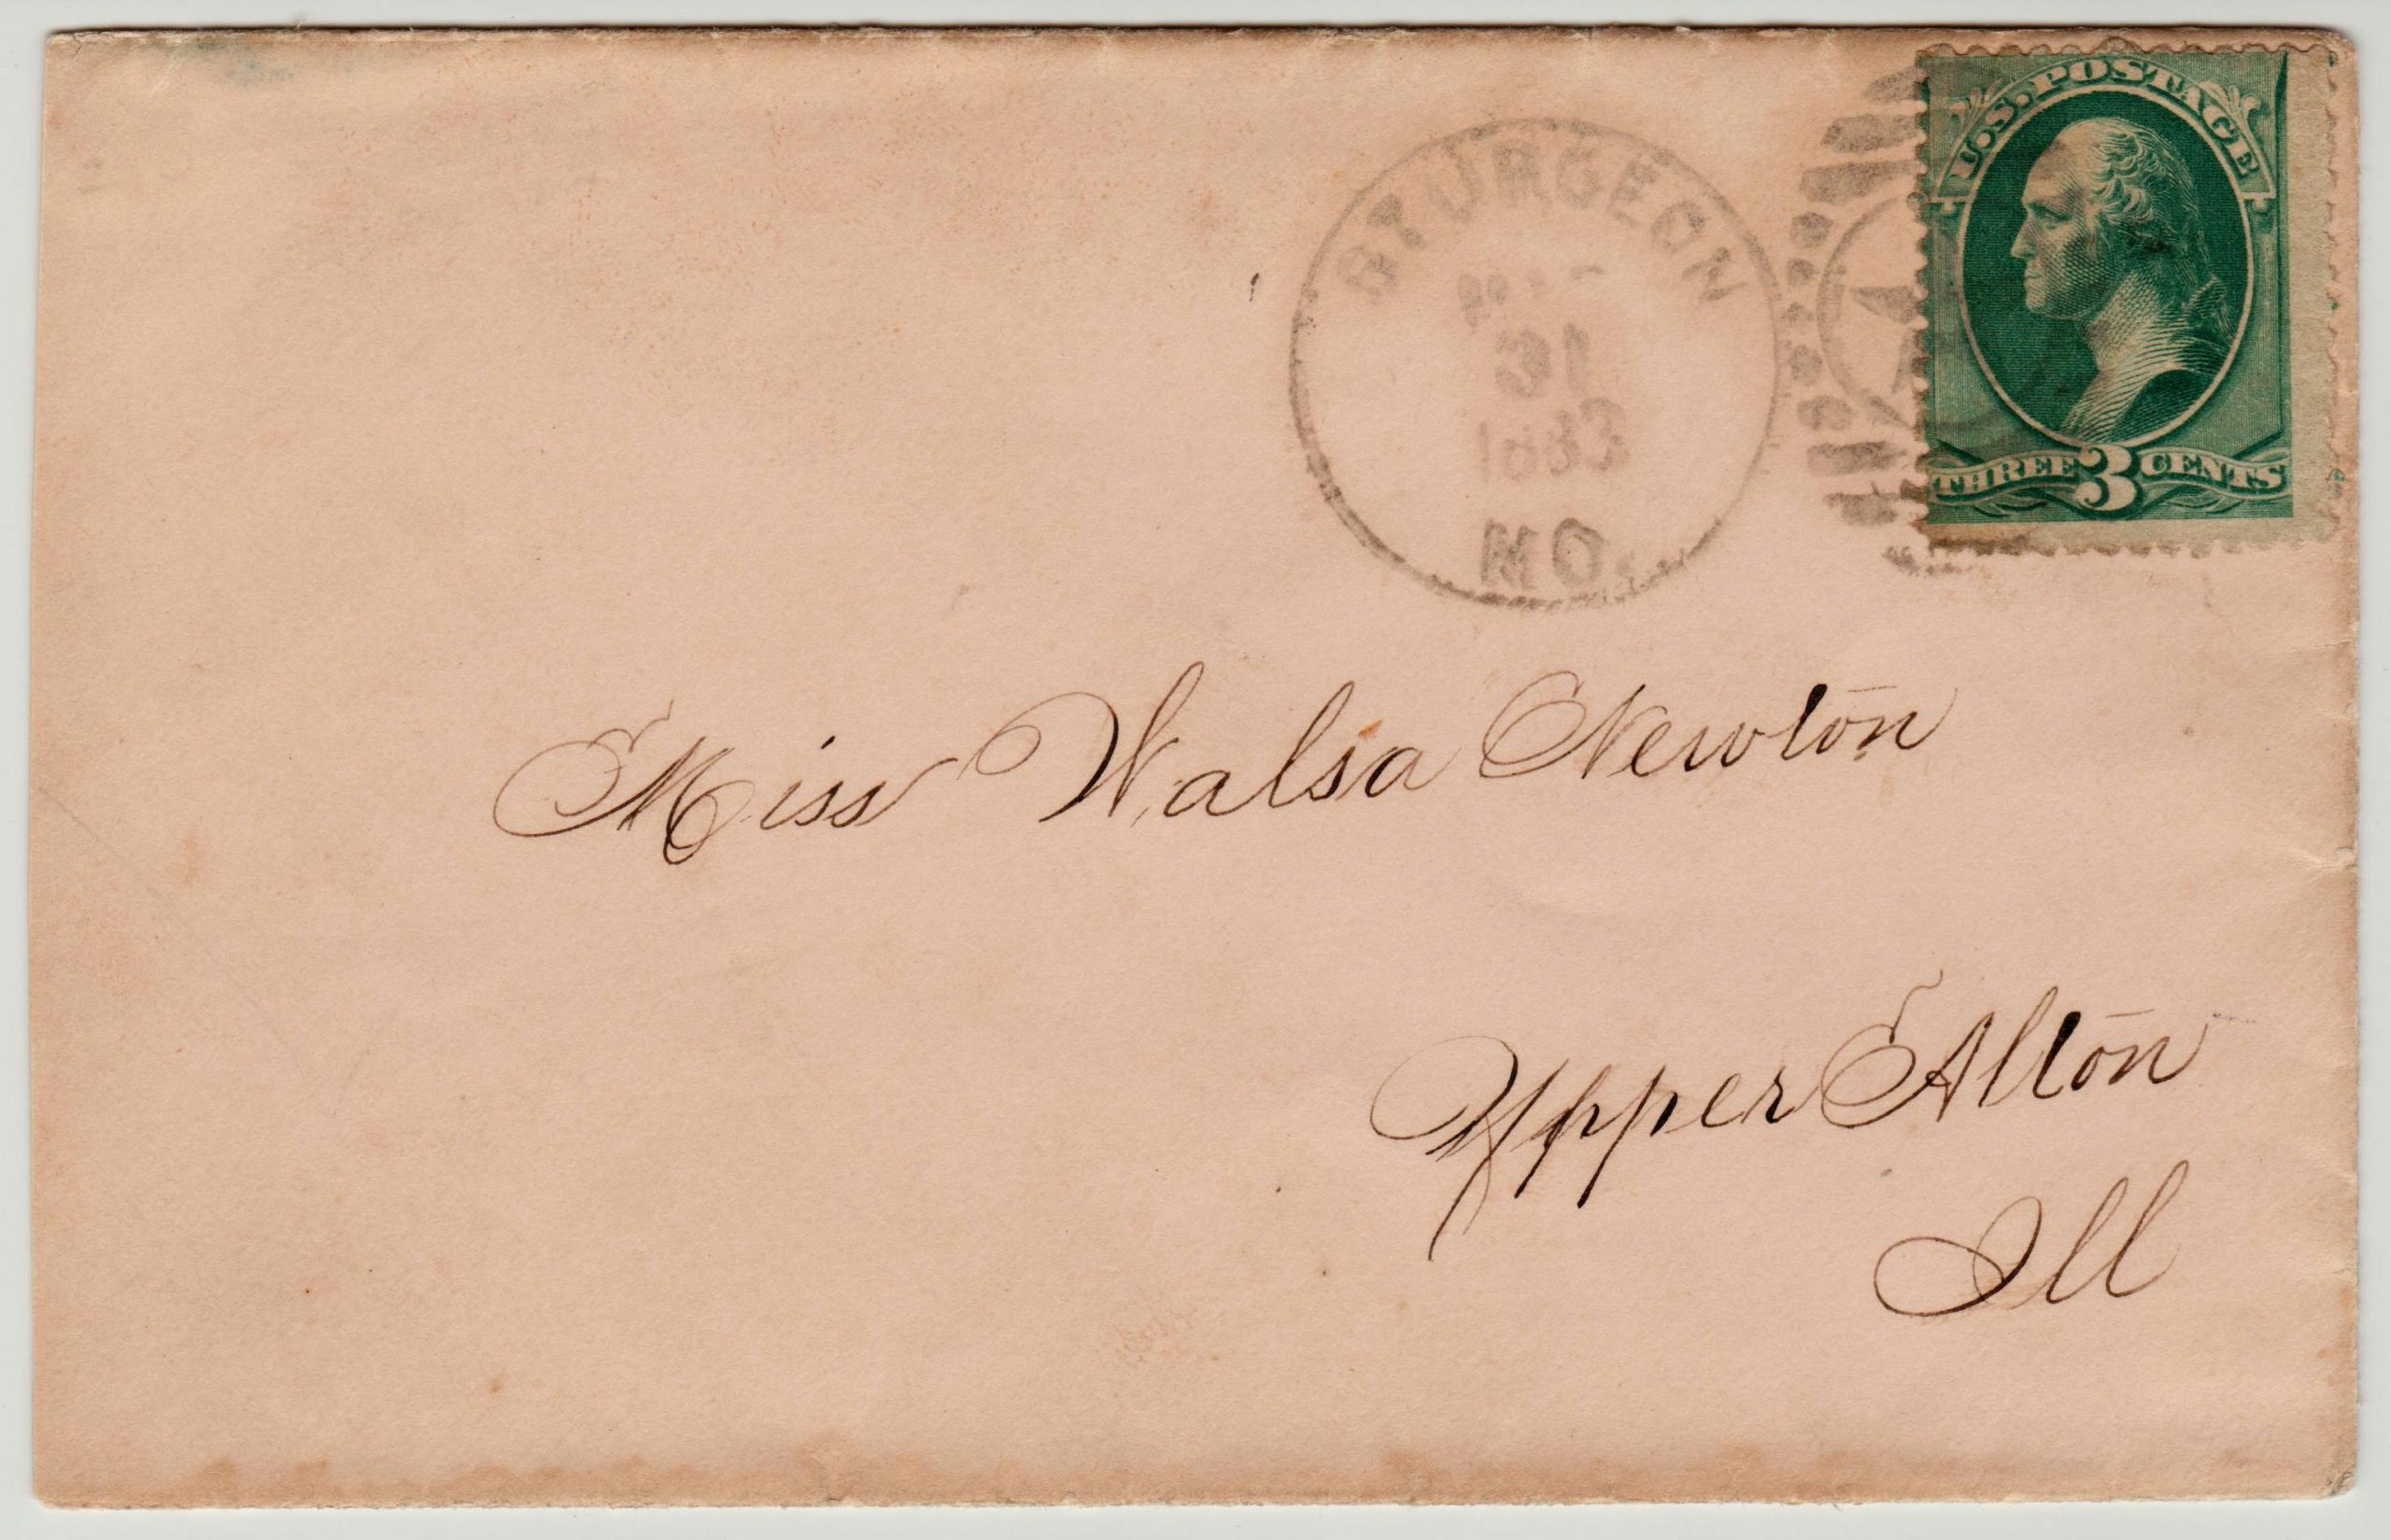 U.S. POSTAGE
THREE 3 CENTS
STURGEON
MO.
Miss Walsa Newton
Upper Alton
Ill